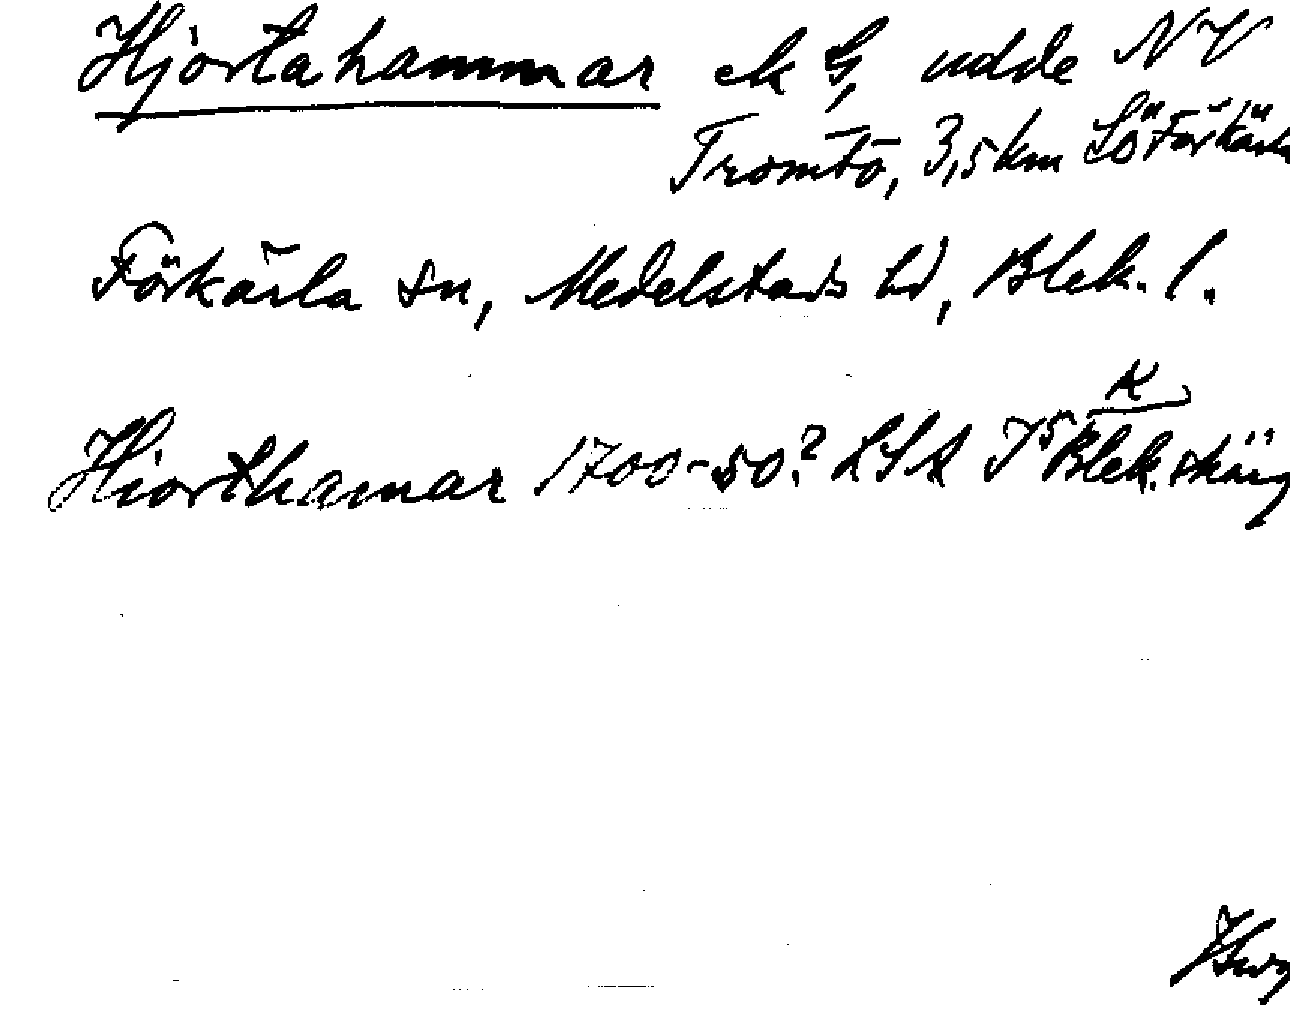 Hjortahammar ek G, udde NV
Tromtö, 3,5 km SÖ Förkärla
Förkärla sn, Medelstads hd, Blek. l.
Hiorthamar 1700-50? LSA Blek. skärg